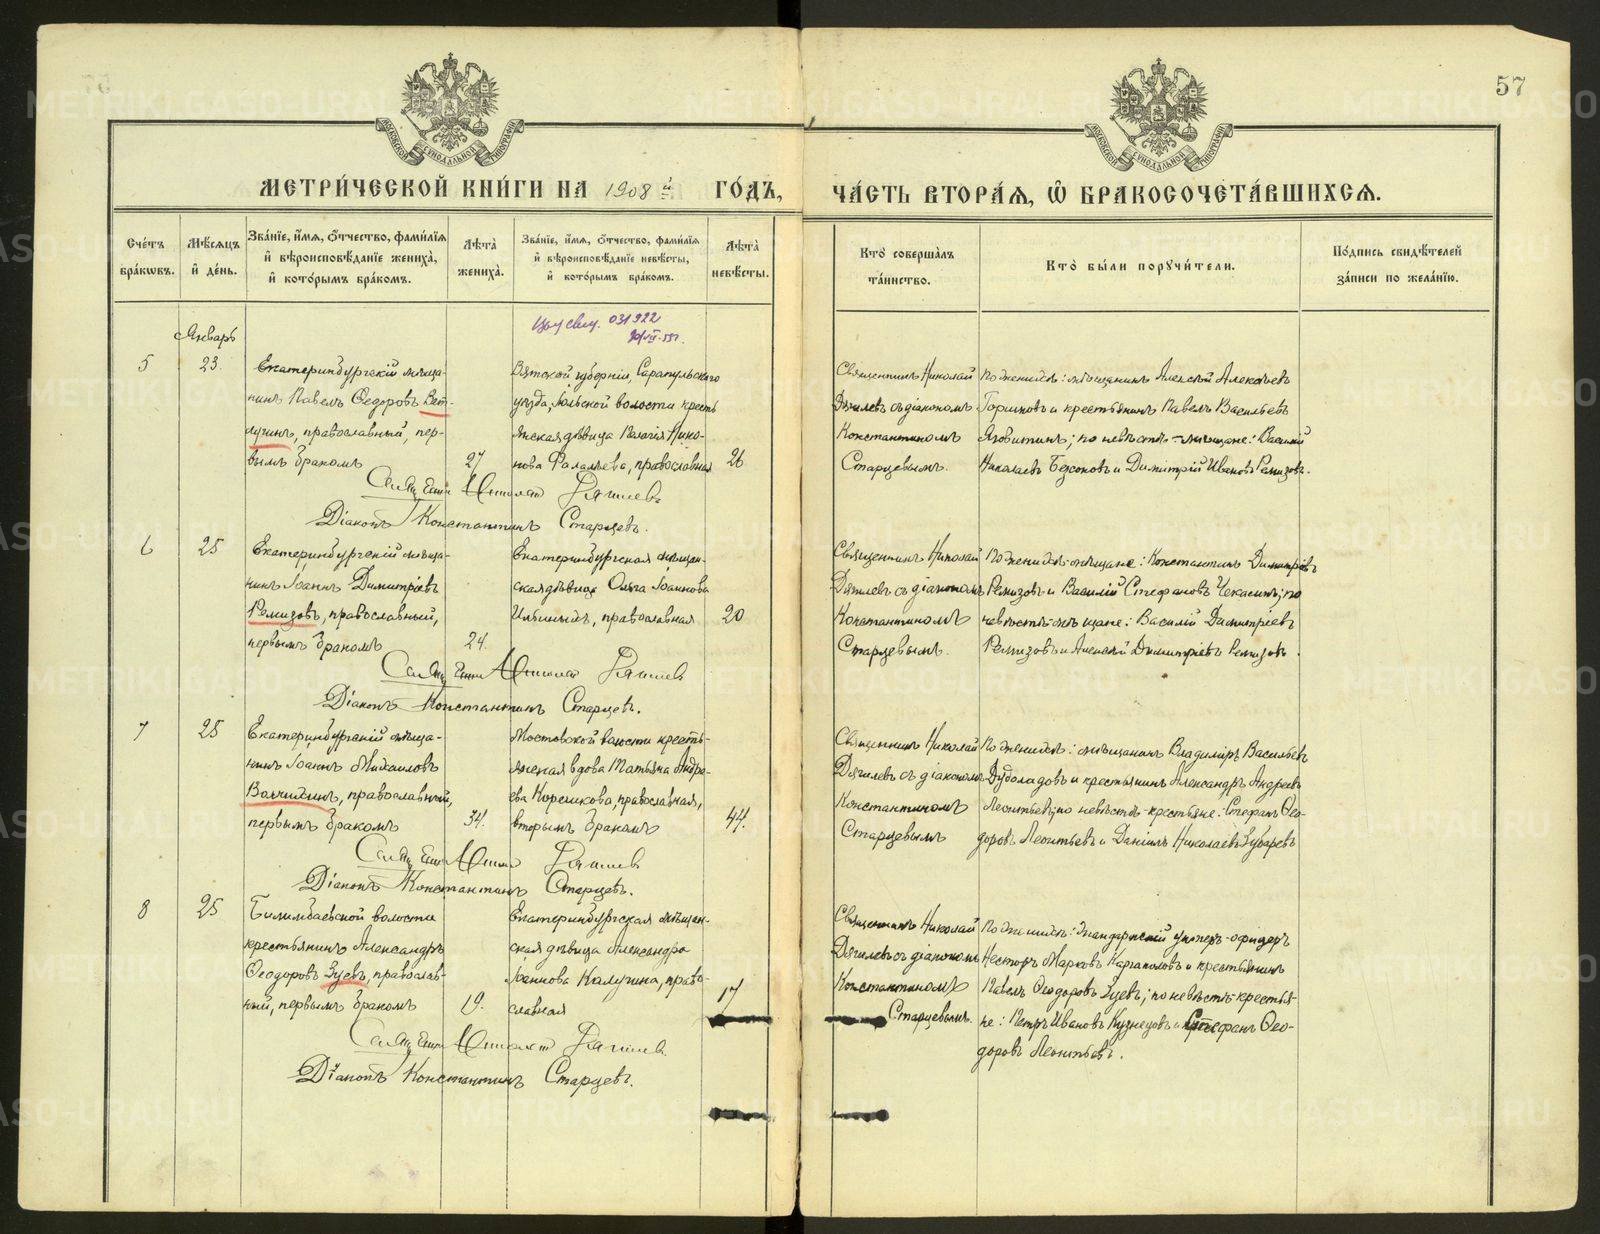 57
МОСКОВСКОЙ СѴНОДАЛЬНОЙ ТИПОГРАФІИ
МОСКОВСКОЙ СѴНОДАЛЬНОЙ ТИПОГРАФІИ
МЕТРИ́ЧЕСКОЙ КНИ́ГИ НА 1908 й ГО́ДЪ,
ЧА́СТЬ ВТОРА́Я, Ѽ БРАКОСОЧЕТА́ВШИХСЯ.
Сче́тъ бра́кѡвъ.
Мѣ́сяцъ и҆ де́нь.
Зва́нїе, и҆́мя, ѻ҆́тчество, фами́лїя и҆ вѣроисповѣ́данїе жениха̀, и҆ кото́рымъ бра́комъ.
Лѣ́та жениха̀.
Зва́нїе, и҆́мя, ѻ҆́тчество, фами́лїя и҆ вѣроисповѣ́данїе невѣ́сты, и҆ кото́рымъ бра́комъ.
Лѣ́та невѣ́сты.
Кто̀ соверша́лъ та́инство.
Кто̀ бы́ли поручи́тели.
По́дпись свидѣ́телей за́писи по жела́нїю.
031922
Январь
5
23.
Екатеринбургскій мѣща-
нинъ Павелъ Ѳедоровъ Вет-
лугинъ, православный, пер-
вымъ бракомъ
27
Вятской губерніи, Сарапульскаго
уѣзда, волости кресть
янская дѣвица Пелагія
Фалалѣева, православная
26
Священникъ Николай
Дягилевъ съ діакономъ
Константиномъ
Старцевымъ.
По женихѣ: мѣщанинъ Алексѣй Алексѣевъ
Горшковъ и крестьянинъ Павелъ Васильевъ
Язовитинъ; по невѣстѣ - мѣщане: Василій
Николаевъ Безсоновъ и Димитрій Ивановъ Ремизовъ.
Николай Дягилевъ
Діаконъ Константинъ Старцевъ.
6
25
Екатеринбургскій мѣща-
нинъ Іоаннъ Димитріевъ
Ремизовъ, православный,
первымъ бракомъ
24.
Екатеринбургская мѣщан-
ская дѣвица Ольга Іоаннова
Ильиныхъ, православная
20
Священникъ Николай
Дягилевъ съ діакономъ
Константиномъ
Старцевымъ.
По женихѣ - мѣщане: Константинъ Димитріевъ
Ремизовъ и Василій Стефановъ Чекасинъ; по
невѣстѣ - мѣщане: Василій Димитріевъ
Ремизовъ и Алексѣй Димитріевъ Ремизовъ.
Николай Дягилевъ
Діаконъ Константинъ Старцевъ.
7
25
Екатеринбургскій мѣща-
нинъ Іоаннъ Михаиловъ
православный,
первымъ бракомъ
34.
Мостовской волости кресть-
янская вдова Татьяна Андре-
ева Коршкова, православная,
вторымъ бракомъ
44.
Священникъ Николай
Дягилевъ съ діакономъ
Константиномъ
Старцевымъ
По женихѣ: мѣщанинъ Владиміръ Васильевъ
Дуболадовъ и крестьянинъ Александръ Андреевъ
Леонтьевъ; по невѣстѣ - крестьяне: Стефанъ Ѳео-
доровъ Леонтьевъ и Даніилъ Николаевъ Зубаревъ
Николай Дягилевъ
Діаконъ Константинъ Старцевъ.
8
25
Билимбаевской волости
крестьянинъ Александръ
Ѳеодоровъ Зуевъ, православ-
ный, первымъ бракомъ
19.
Екатеринбургская мѣщан-
ская дѣвица Александра
Іоаннова Калугина, право-
славная
17
Священникъ Николай
Дягилевъ съ діакономъ
Константиномъ
Старцевымъ.
По женихѣ: жандармскій унтеръ-офицеръ
Несторъ Марковъ Каргаполовъ и крестьянинъ
Павелъ Ѳеодоровъ Зуевъ; по невѣстѣ - крестья-
не: Петръ Ивановъ Кузнецовъ и Стефанъ Ѳео-
доровъ Леонтьевъ.
Николай Дягилевъ
Діаконъ Константинъ Старцевъ.
METRIKI.GASO-URAL.RU